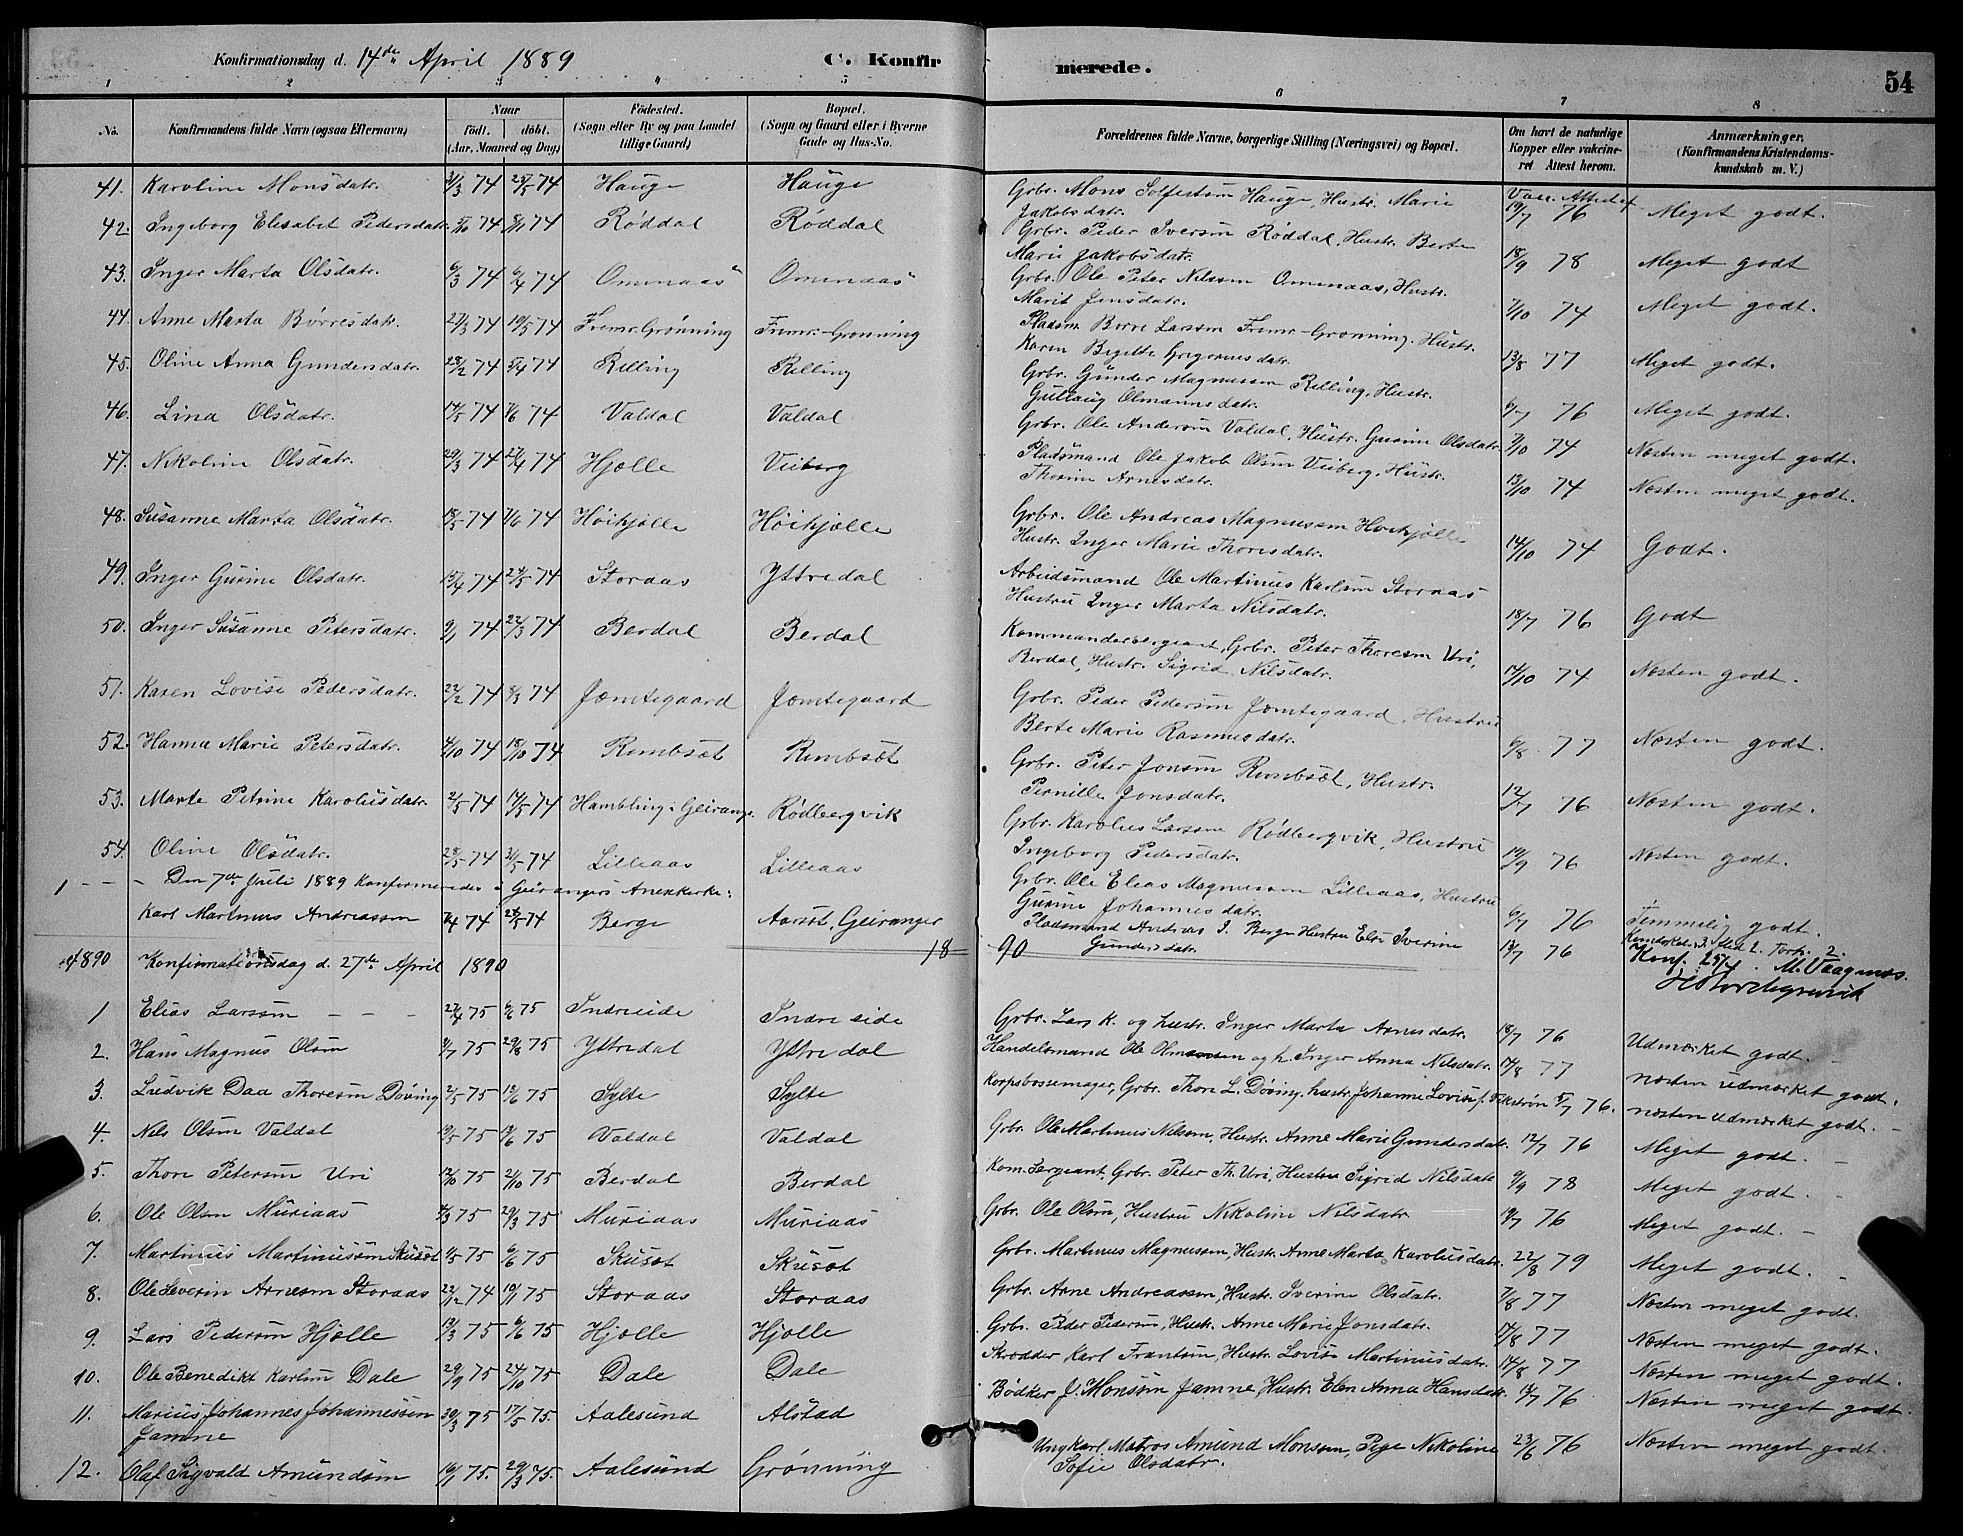 Konfirmationsdag d. 14de April 1889 C. Konfirmerede. 54
1 2 3 4 5 6 7 8
No. Konfirmandens fulde Navn (ogsaa Efternavn) Naar født. døbt. (Aar, Maaned og Dag) Födested. (Sogn eller By og paa Landet tillige Gaard) Bopæl. (Sogn og Gaard eller i Byerne Gade og Hus-No. Forældrenes fulde Navne, borgerlige Stilling (Næringsvei) og Bopæl. Om havt de naturlige Kopper eller vakcineret Attest herom. Anmærkninger. (Konfirmandens Kristendomskundskab m. V.)
41. Karoline Monsdatr. 31/3 74 25/5 74 Hauge Hauge Grbr. Mons Solfestsøn Hauge, Hustr. Marie Jakobsdatr. Vacc. Attest af 19/7 76 Meget godt.
42. Ingeborg Elisabet Pedersdatr. 74 74 Røddal Røddal Grbr. Peder Iversøn Røddal, Hustr. Berte Marie Jakobsdatr. 18/9 78 Meget godt
43. Inger Marta Olsdatr. 6/3 74 6/4 74 Omenaas Omenaas Grbr. Ole Peter Nilssøn Omenaas, Hustr. Marit Jensdatr. 7/10 74 Meget godt.
44. Anne Marta Børresdatr. 27/3 74 10/5 74 Fremr. Grønning Fremr.-Grønning Pladsm. Børre Larssøn Fremr-Grønning, Hustr. Karen Begitte Gregoriusdatr. 13/8 77 Meget godt.
45. Oline Anna Gundersdatr. 28/2 74 5/4 74 Relling Relling Grbr. Gunder Magnussøn Relling, Hustr. Gullaug Olmannsdatr. 6/7 76 Meget godt.
46. Lina Olsdatr. 17/5 74 7/6 74 Valdal Valdal Grbr. Ole Andersøn Valdal, Hustr. Gurine Olsdatr. 7/10 74 Næsten meget godt.
47. Nikoline Olsdatr. 29/3 74 27/4 74 Hjelle Veiberg Pladsmand Ole Jakob Olsøn Veiberg, Hustr. Thorine Arnesdatr. 13/10 74 Næsten meget godt.
48. Susanne Marta Olsdatr. 18/5 74 7/6 74 Höihjølle Höihjælle Grbr. Ole Andreas Magnussøn Høihjølle Hustr. Inger Marie Thoresdatr. 14/10 74 Godt.
49. Inger Gurine Olsdatr. 17/4 74 24/5 74 Storaas Yttredal Arbeidsmand Ole Martinus Karlsøn Storaas Hustru Inger Marta Nilsdatr. 18/7 76 Godt
50. Inger Susanne Petersdatr. 9/1 74 22/3 74 Berdal Berdal Kommandersergeant, Grbr. Peter Thoresøn Uri, Berdal, Hustr. Sigrid Nilsdatr. 14/10 74 Næsten godt.
51. Karen Lovise Pedersdatr. 22/2 74 8/3 74 Jemtegaard Jemtegaard Grbr. Peder Pedersøn Jemtegaard, Hustru Berte Marie Rasmusdatr. 6/8 77 Næsten godt.
52. Hanna Marie Petersdatr. 4/10 74 18/10 74 Rembsøt Rembsøt Grbr. Peter Jonsøn Rembsøt, Hustr. Pernille Jonsdatr. 12/7 76 Næsten godt.
53. Marte Petrine Karolusdatr. 2/5 74 14/5 74 Hambling i Geiranger. Rødbergvik Grbr. Karolus Larssøn Rødbergvik, Hustru Ingeborg Pedersdatr. 19/9 76 Næsten godt.
54. Oline Olsdatr. 28/5 74 31/5 74 Lilleaas Lilleaas Grbr. Ole Elias Magnussøn Lilleaas, Hustru Gurine Johannesdatr. 6/7 76 Temmelig godt.
1 - - - Den 7de Juli 1889 Konfirmeredes i Geirangers Anexkirke:
Karl Martinus Andreassøn 7/4 74 25/5 74 Berge Aarsæt, Geiranger Pladsmand Andreas I. Berge Hustru Else Iverine Gundersdatr. 13/7 76
1890 Konfirmationsdag d. 27de April 1890 18 90 Konf. 25/4. M. Vaagnæs.
1 Elias Larssøn - - - 27/4 75 6/6 75 Indreeide Indreeide Grbr. Lars K. og hustr. Inger Marta Arnesdatr. 18/7 76 Udmærket godt. -
2. Hans Magnus Olsøn 9/7 75 29/8 75 Yttredal Yttredal Handelsmand Ole Olmansen og h. Inger Anna Nilsdatr. 17/8 77 næsten udmærket godt.
3. Ludvik Daa Thoresøn Døving 2/5 75 13/6 75 Sylte Sylte Korpsbøssemager, Grbr. Thore L. Døving, hustr. Johanne Lovise f. Ekstrøm 5/7 76. næsten udmærket godt. -
4. Nils Olsøn Valdal 19/5 75 19/6 75 Valdal Valdal Grbr. Ole Martinus Nilsøn, Hustr. Anne Marie Gundersdatr. 12/7 76 Meget godt. -
5. Thore Petersøn Uri 12/10 75 24/10 75 Berdal Berdal Kom. Sergeant, Grbr. Peter Th. Uri, Hustru Sigrid Nilsdatr 9/9 78 Meget godt. -
6. Ole Olsøn Muriaas 4/3 75 29/3 75 Muriaas Muriaas Grbr. Ole Olsøn, Hustru Nikoline Nilsdatr 19/7 76 Meget godt. -
7. Martinus Martinussøn Skusøt 1/5 75 6/6 75 Skusøt Skusøt Grbr. Martinus Magnussøn, Hustr. Anne Marta Karolusdatr. 22/8 79 Meget godt. -
8. Ole Severin Arnesøn Storaas 22/12 74 10/1 75 Storaas Storaas Grbr. Arne Andreassøn, Hustr. Iverine Olsdatr. 7/8 77 Næsten meget godt.
9. Lars Pedersøn Hjelle 13/3 75 6/6 75 Hjelle Hjelle Grbr. Peder Pedersøn, Hustr. Anne Marie Jonsdatr. 17/8 77 Næsten meget godt.
10. Ole Benedikt Karlsøn Dale 29/9 75 24/10 75 Dale Dale Skrædder, Karl Frantsøn, Hustr. Lovise Martinusdatr. 14/8 77 Næsten meget godt.
11. Marius Johannes Johannessen Jamne 30/3 75 17/5 75. Aalesund Alstad Bødker J. Monssøn Jamne, Hustr. Elen Anna Hansdatr. 13/7 76 Næsten meget godt.
12. Olaf Sigvald Amundsøn 16/1 75. 29/3 75. Aalesund Grønning Ungkarl, Matros Amund Monsøn, Pige Nikoline Sofie Olsdatr. 23/6 76 Næsten meget godt.